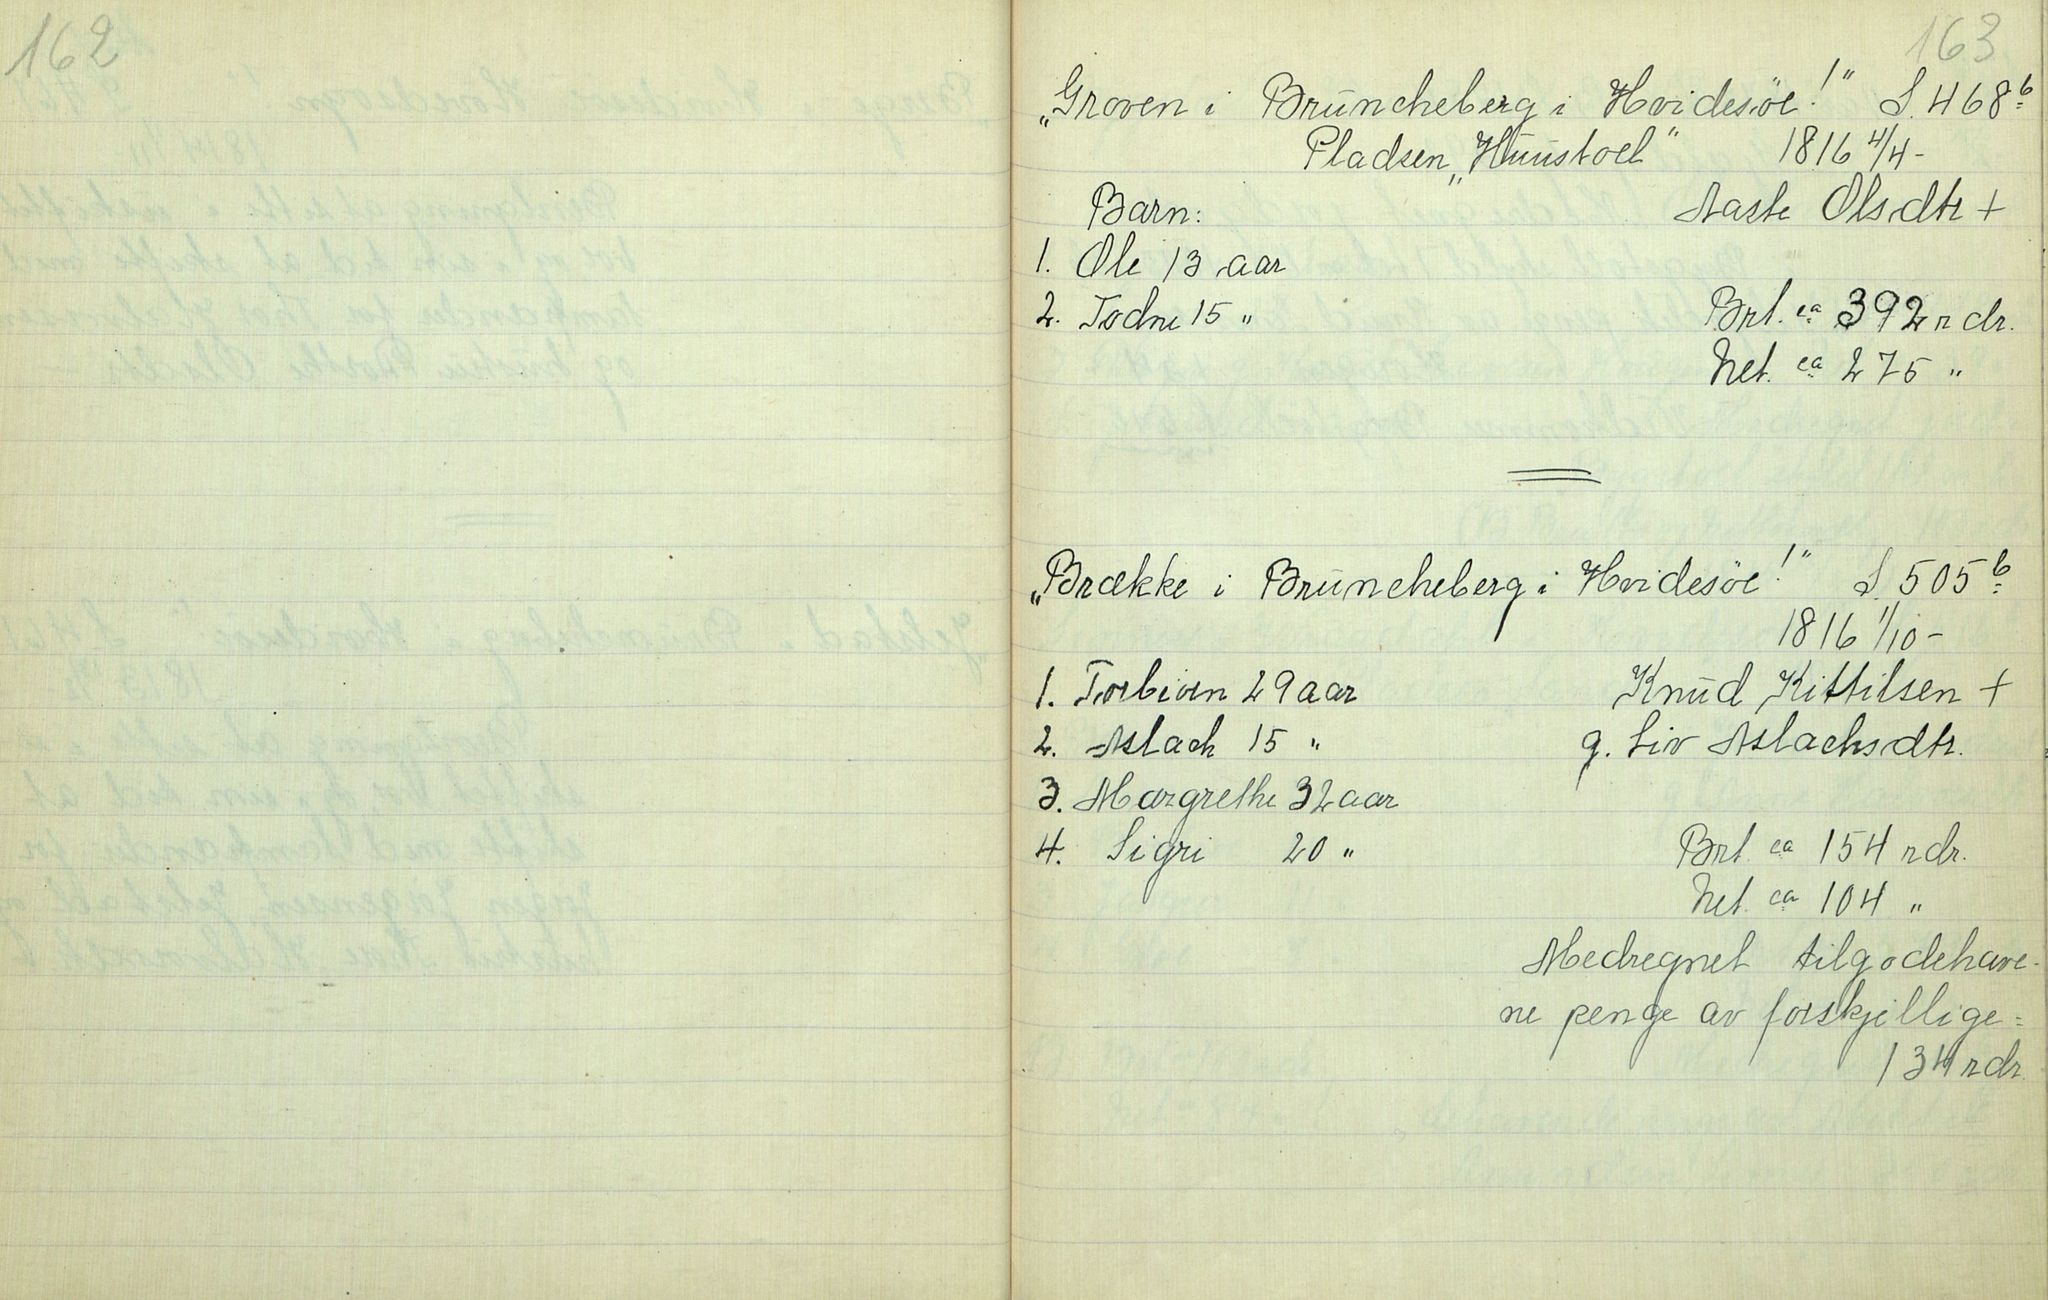 162
163
„Groven i Brüncheberg i Hvidesöe!" S. 468 b
Pladsen „Huustoel" 1816 4/4-
Barn: Aaste Olsdtr +
1. Ole 13 aar
2. Todne 15 " Brt. ca 392 rdr.
Net. ca 275 "
„Brække i Brüncheberg i Hvidesöe!" S. 505 b
1816 1/10-
1. Torbiørn 29 aar Knud Kittilsen +
2. Aslach 15 " g. Liv Aslachsdtr.
3. Margrethe 32 aar
4. Sigri 20 " Brt. ca 154 rdr.
Net. ca 104 "
Medregnet tilgodehave-
ne penge av forskjellige =
134 rdr.